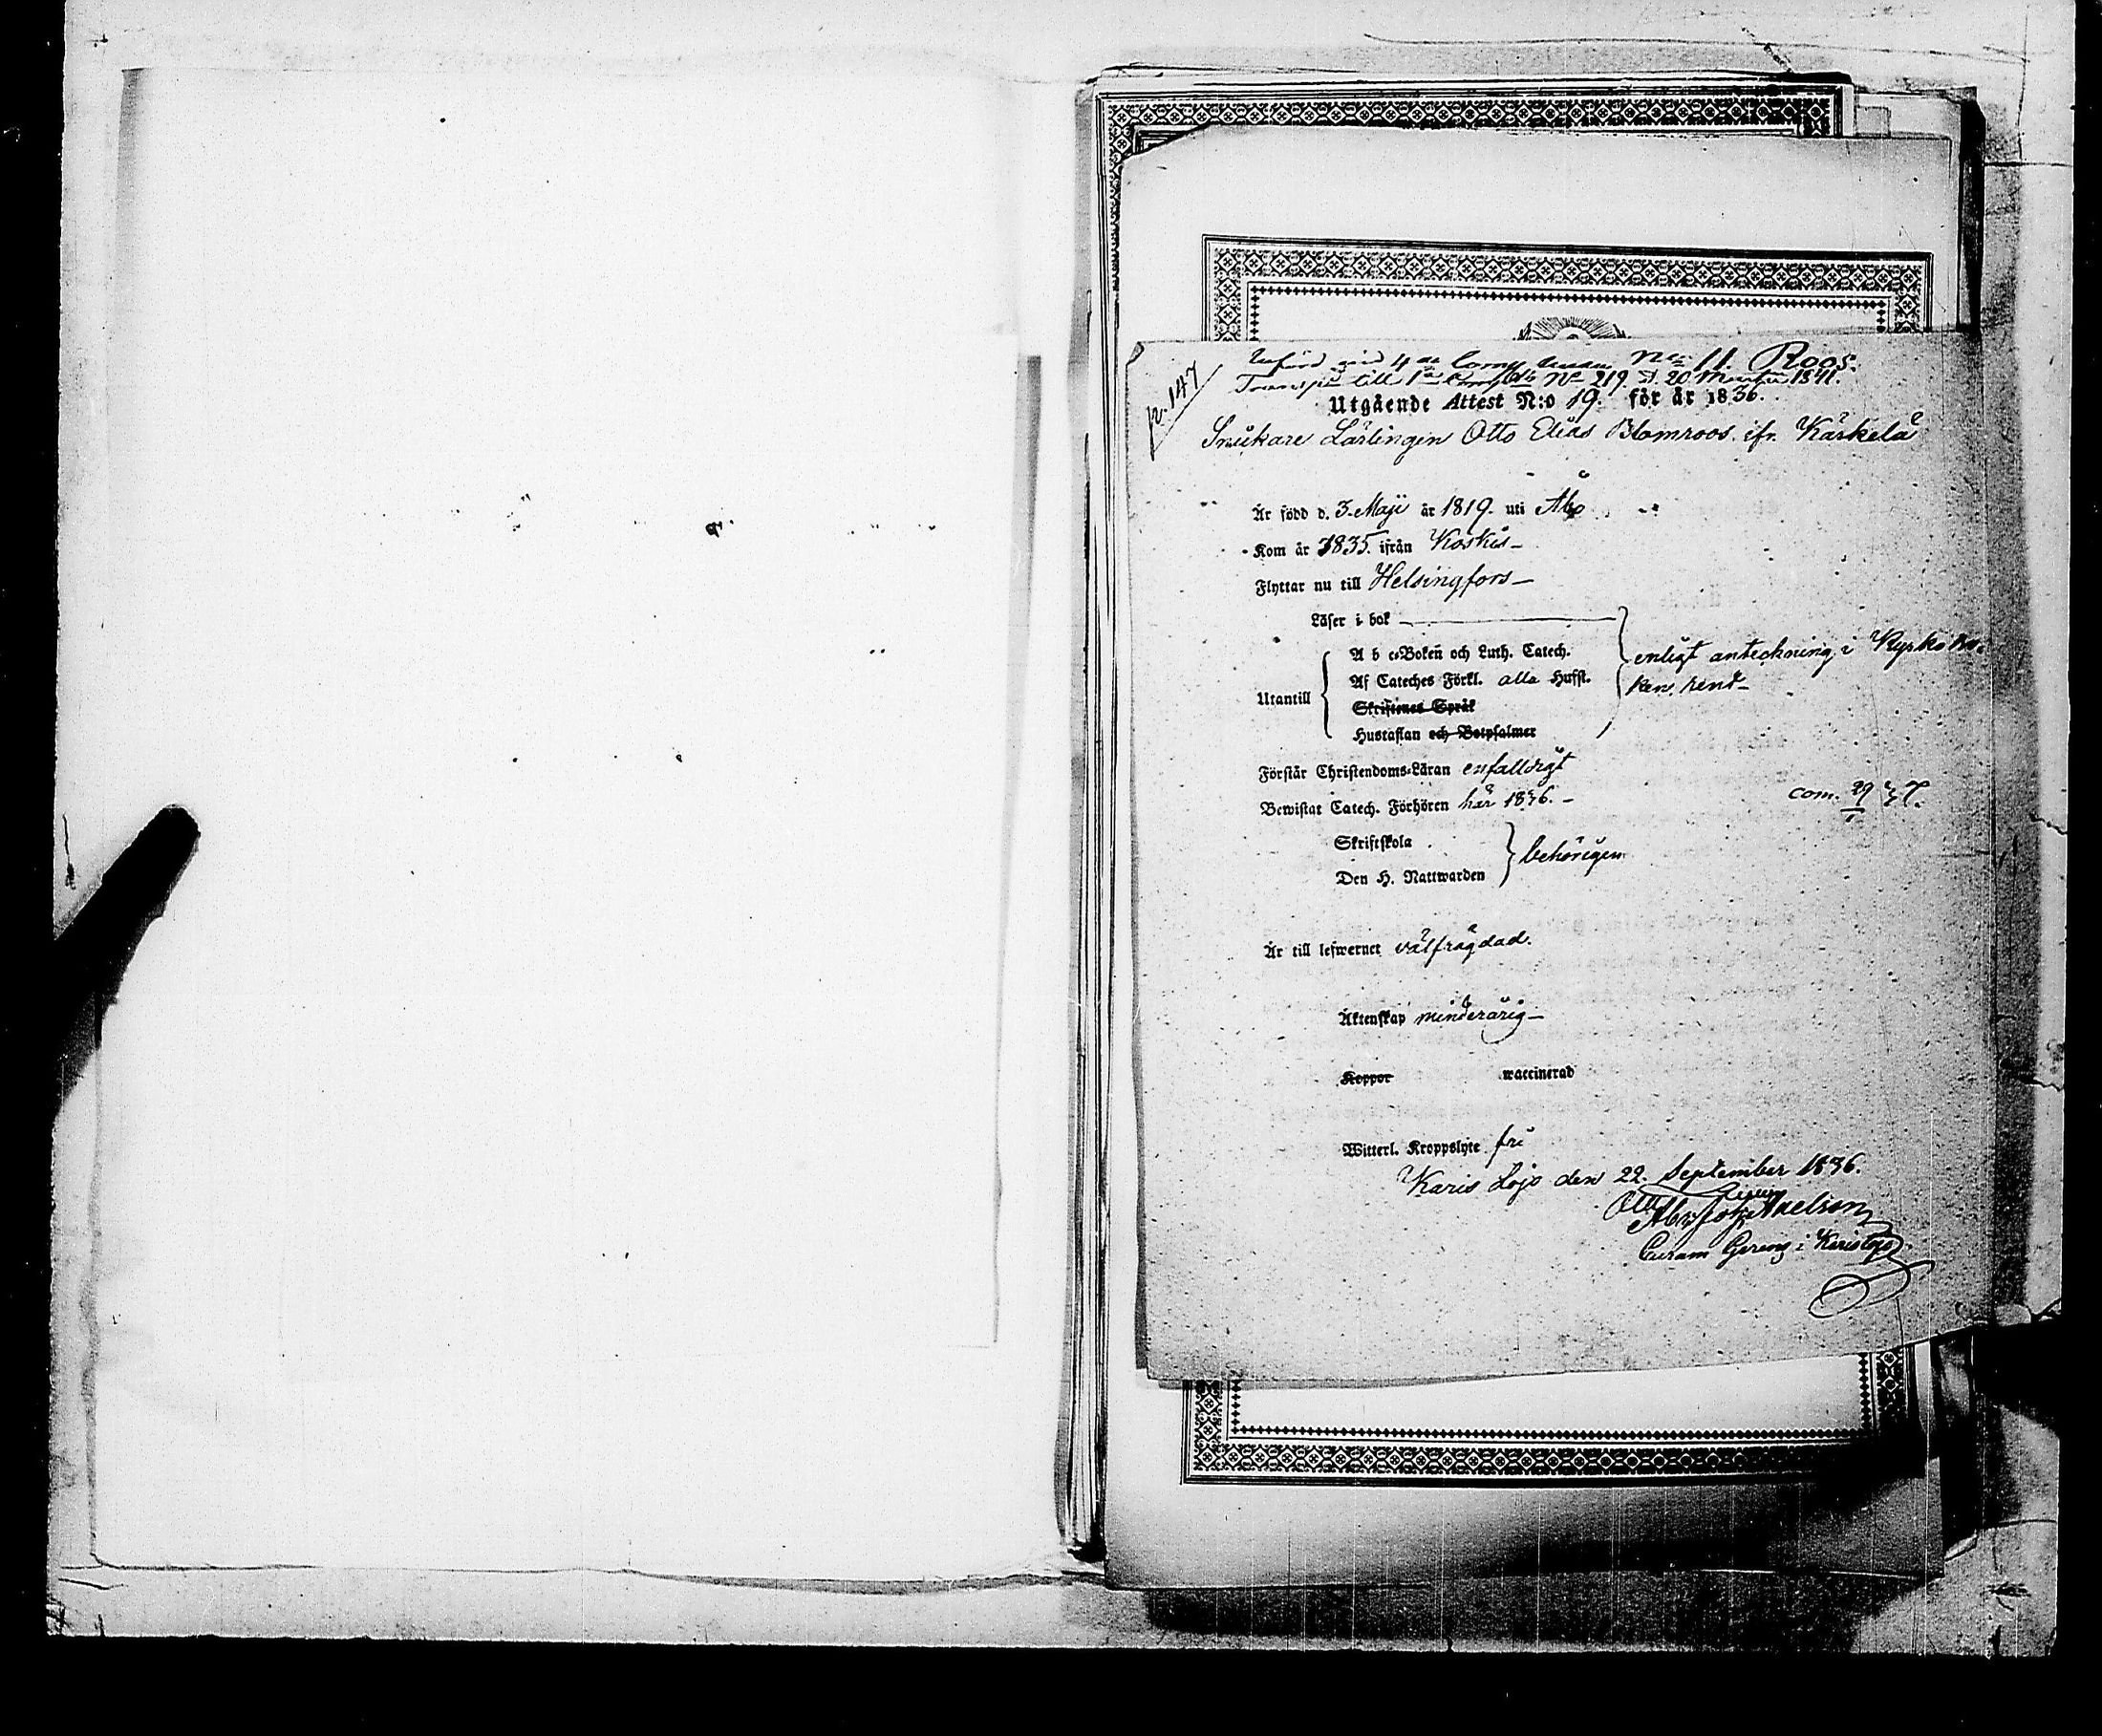 p. 147
Införd vid 4de Comp. under No 11. Roos.
Transp. till 1a Comp. No 219. d. 20 Martii 1841.
Utgående Attest N:o 19. för år 1836.
Snickare Lärlingen Otto Elias Blomroos ifr. Kärkelä
Är född d. 3. Maji år 1819. uti Åbo
Kom år 1835. ifrån Koskis
Flyttar nu till Helsingfors
Läser i bok
A b c-Boken och Luth. Catech.
Af Cateches Förkl. alla Hufst.
Utantill
Skriftenes Språk
Hustaflan och Botpsalmer
enligt anteckning i Kyrkobo-
ken. rent
Förstår Christendoms-Läran enfalldigt
Bewistat Catech. Förhören här 1836.
com. 29
Skriftskola
Den H. Nattwarden
behörigen
Är till lefwernet välfrägdad.
Äktenskap minderårig
Koppor waccinerad
Witterl. Kroppslyte fri
Karis Lojo den 22. September 1836.
Axelson
Curam Gerens i Karislojo